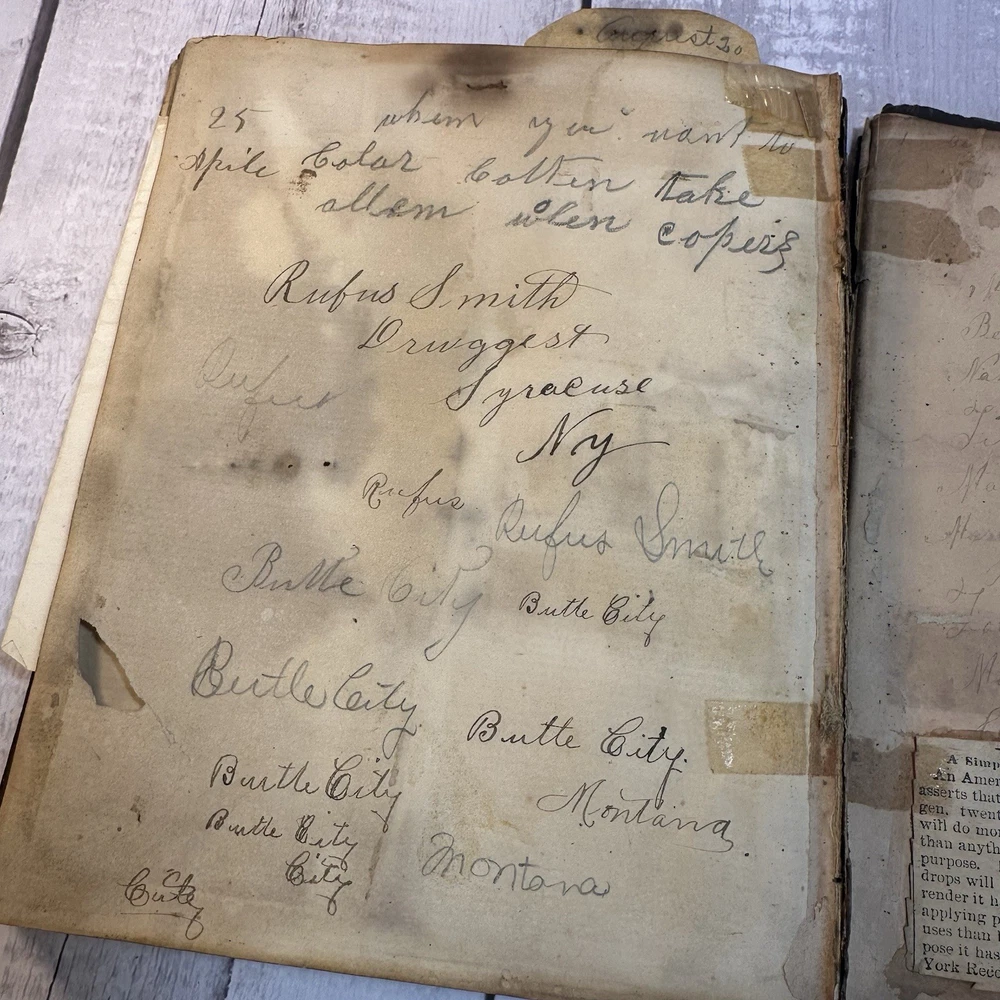 August 20
25 when you want to
spile Color Cotten take
allem when copers
Rufus Smith
Druggest
Rufus
Syracuse
Ny
Rufus
Rufus Smith
Butte City
Butte City
Butte City
Butte City.
Butte City
Montana
Butte City
City
Montana
City
A Simp
An Amer
asserts that
gen, twent
will do mor
than anyth
purpose.
drops will
render it h
applying p
uses than
pose it has
York Reco